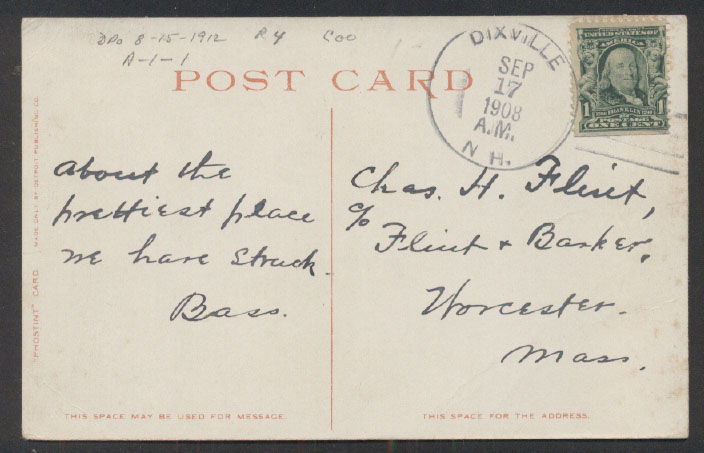 DPO 8-15-1912 R4 COO
A-1-1
POST CARD
DIXVILLE
SEP
17
1908
A.M.
N.H.
UNITED STATES OF
AMERICA
1 1
FRANKLIN
POSTAGE
ONE CENT
About the
prettiest place
we have struck.
Bass.
Chas. H. Flint,
c/o
Flint & Barker.
Worcester.
Mass.
"PHOSTINT" CARD
MADE ONLY BY DETROIT PUBLISHING CO.
THIS SPACE MAY BE USED FOR MESSAGE.
THIS SPACE FOR THE ADDRESS.